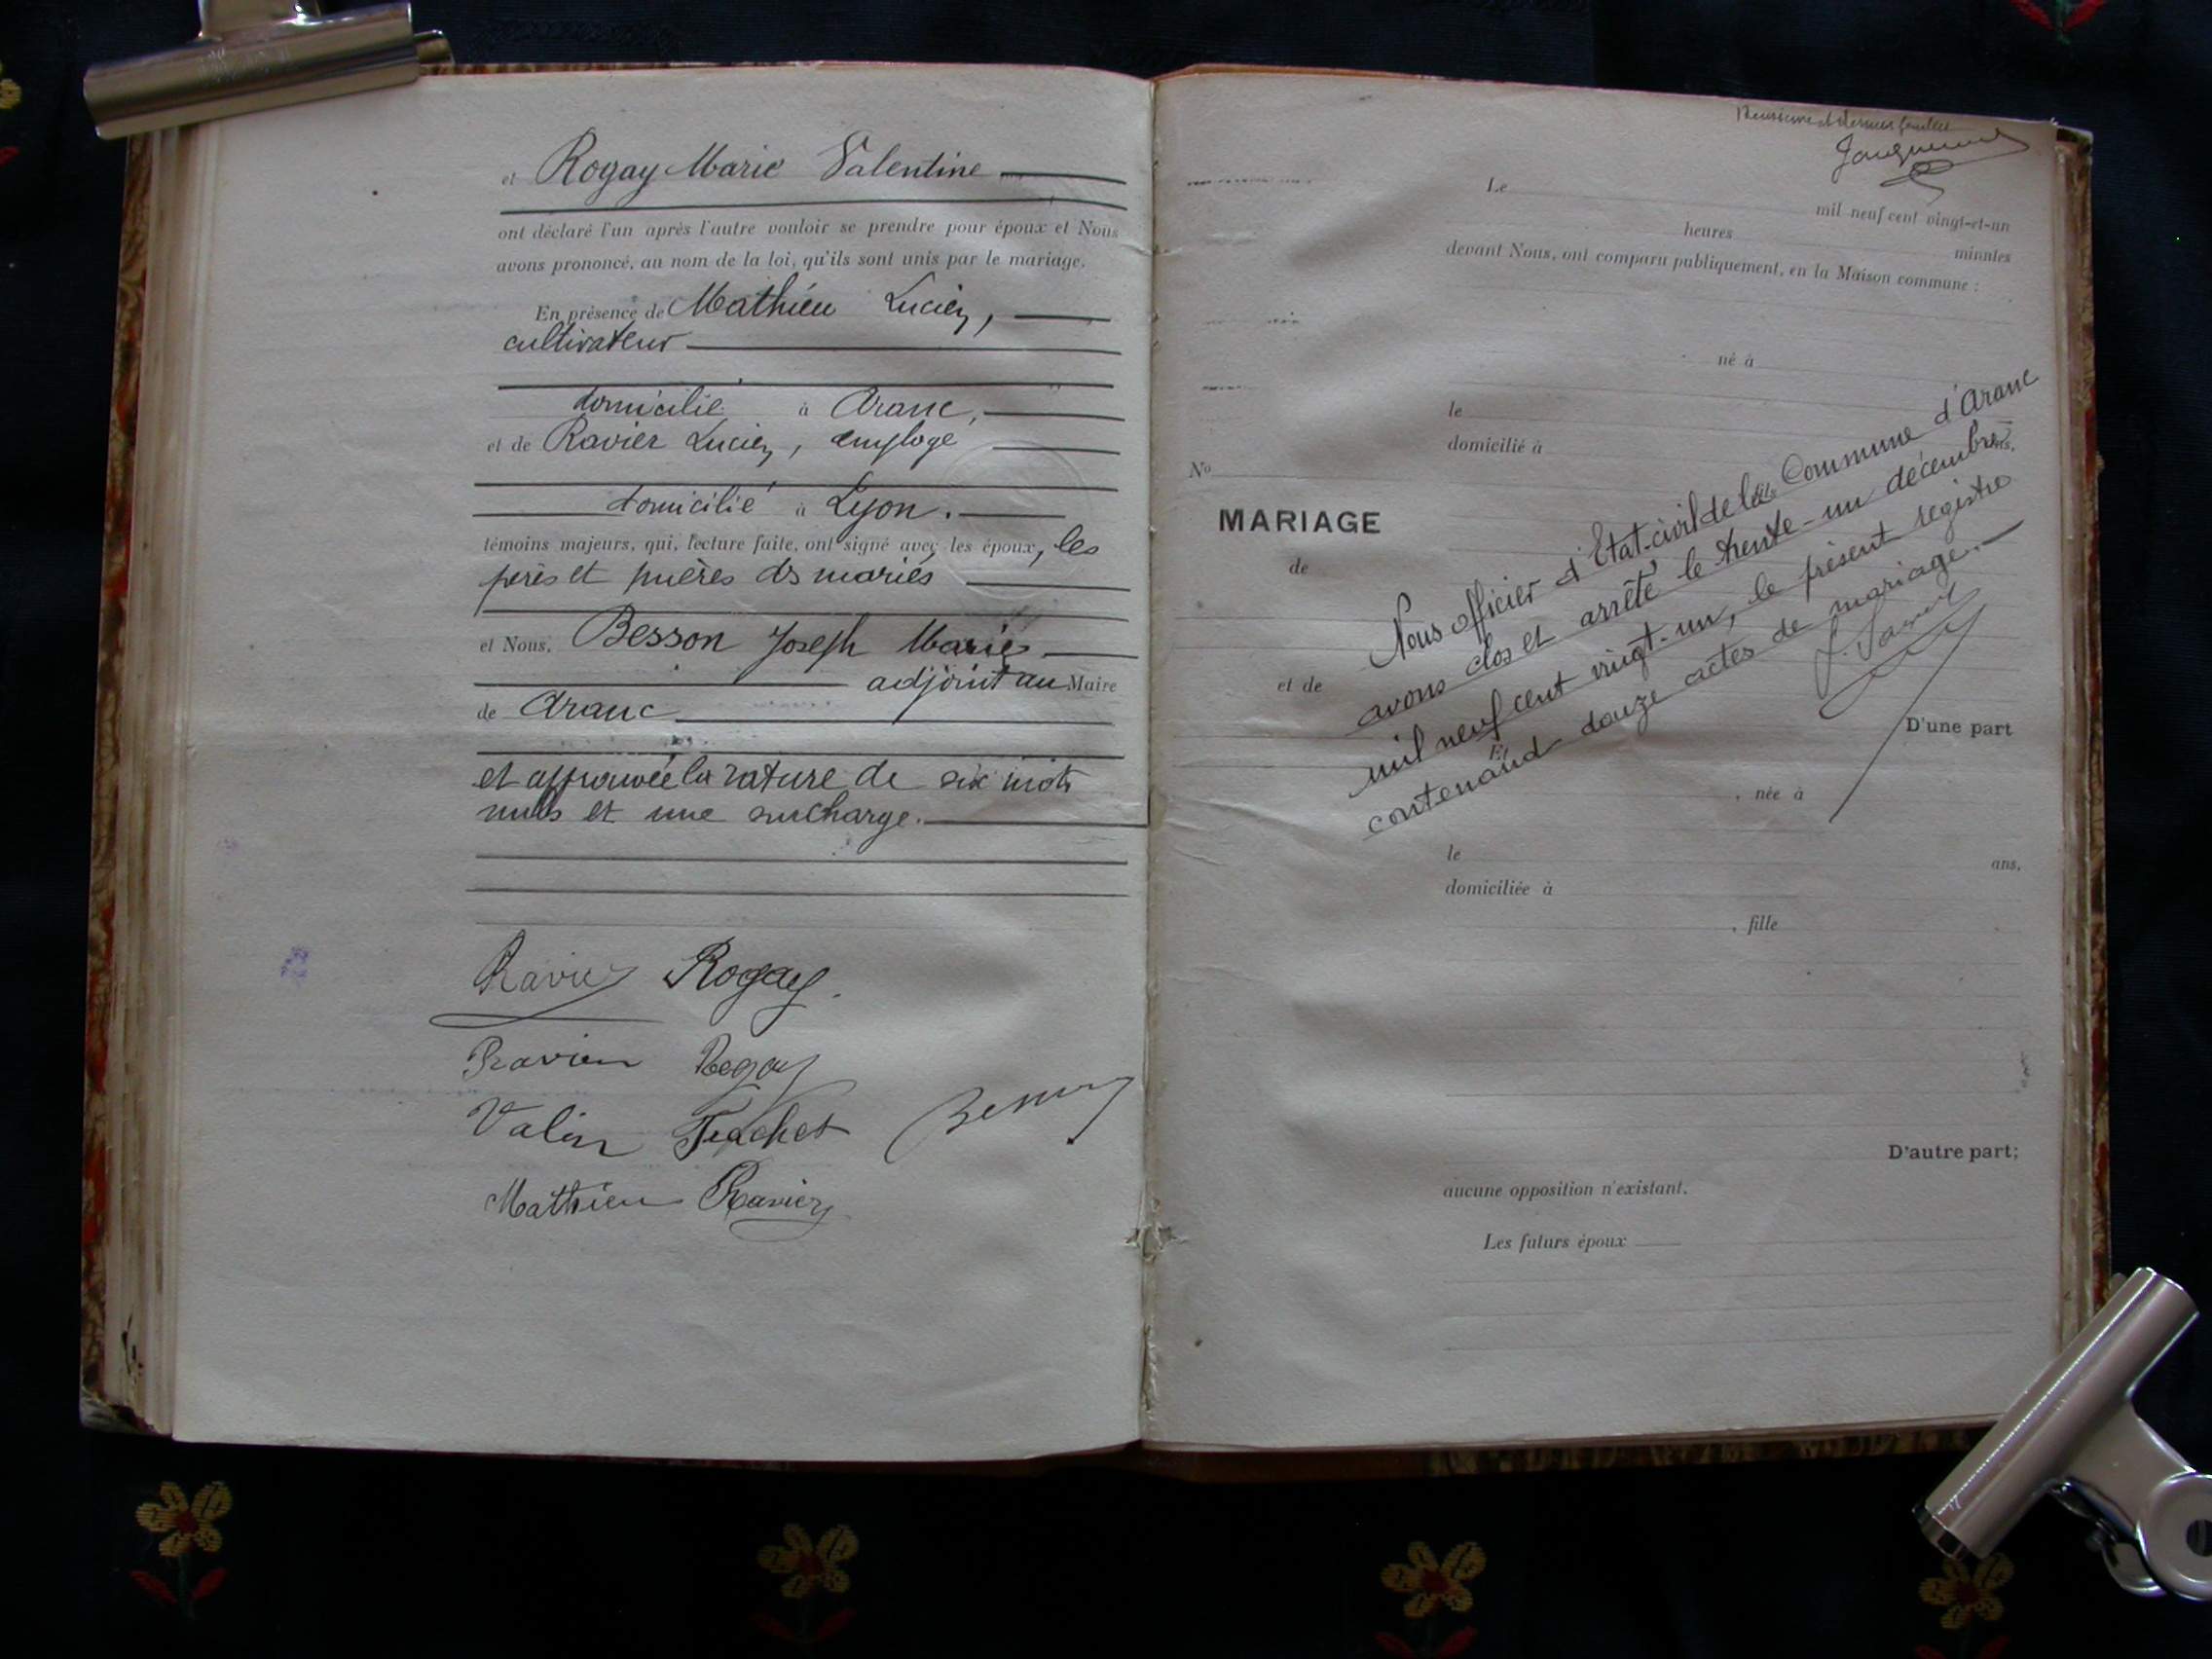 et Rogay Marie Valentine
ont déclaré l'un après l'autre vouloir se prendre pour époux et Nous
avons prononcé, au nom de la loi, qu'ils sont unis par le mariage.
En présence de Mathieu Lucien,
cultivateur
domicilié à Aranc,
et de Ravier Lucien, employé
domicilié à Lyon.
témoins majeurs, qui, lecture faite, ont signé avec les époux, les
pères et mères ds mariés
et Nous, Besson Joseph Marie
adjoint au Maire
de Aranc
et approuvée la rature de six mots
nuls et une surcharge.
Ravier Rogay
Ravier Rogay
Valin Trachet Besson
Mathieu Ravier
et dernier feuillet
Le
mil neuf cent vingt-et-un
heures
minutes
devant Nous, ont comparu publiquement, en la Maison commune :
né à
le
ans,
domicilié à
fils
No
MARIAGE
de
et de
Nous officier d'Etat-civil de la Commune d'Aranc
avons clos et arrêté le trente-un décembre
mil neuf cent vingt-un, le présent registre
contenand douze actes de mariage.
D'une part
Et
, née à
le
ans,
domiciliée à
, fille
D'autre part;
aucune opposition n'existant.
Les futurs époux